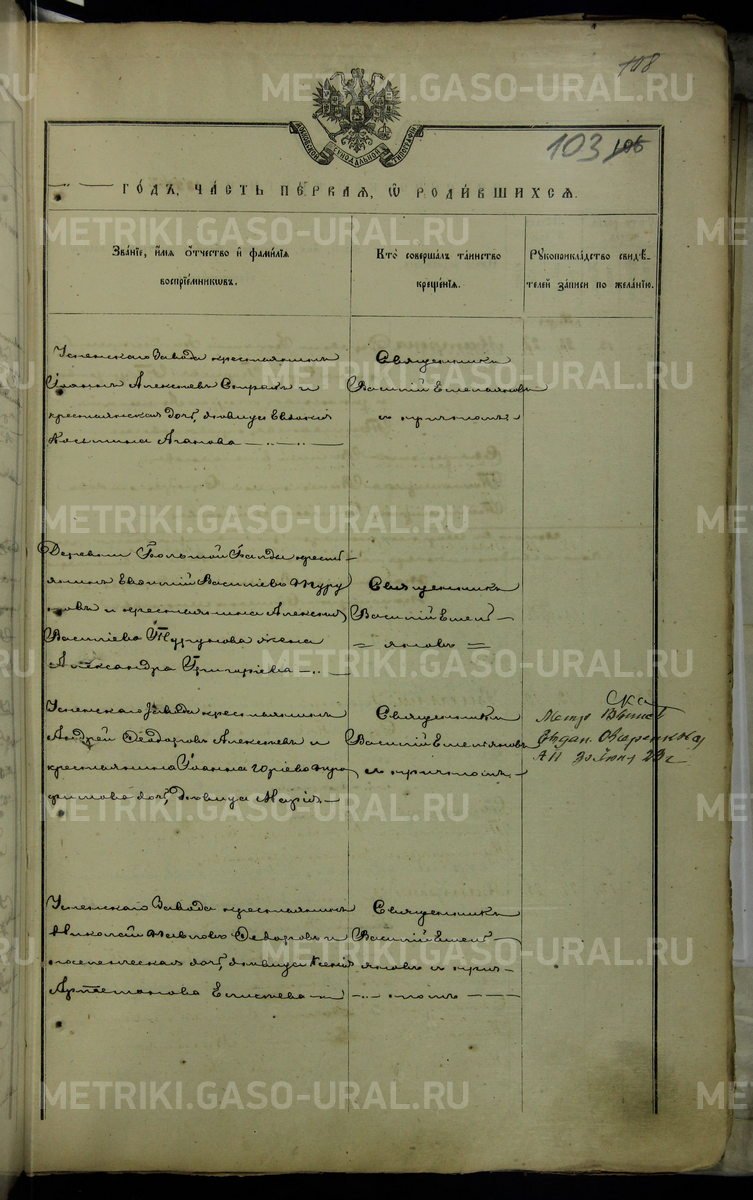 108
103 106
МОСКОВСКОЙ СѴНОДАЛЬНОЙ ТИПОГРАФІИ
ГО́ДЪ, ЧА́СТЬ ПЕ́РВАЯ, Ѡ РОДИ́ВШИХСЯ.
Зва́нїе, и҆́мя ѻ҆́тчество и҆ фами́лїя
воспрїе́мникѡвъ.
Кто̀ соверша́лъ та́инство
креще́нїя.
Рꙋкоприкла́дство свидѣ́-
телей за́писи по жела́нїю.
Успенскаго Завода крестьянинъ
Іоаннъ Алексѣевъ и
крестьянская дочь, дѣвица Евдокія
Космина Агапова
Священникъ
Василій Емельяновъ
съ причтомъ
Деревни Большой кресть-
янинъ Евѳимій Васильевъ Туру
новъ и крестьянина Алексія
Василіева Турунова жена
Александра Григоріева
Священникъ
Василій Емель-
яновъ
Успенскаго Завода крестьянинъ
Андрей Ѳеодоровъ Алексѣевъ и
крестьянина Іоанна Юріева Тро-
фимова дочь, Дѣвица Марія
Священникъ
Василій Емельяновъ
съ причтомъ
30 Июня 23 г
Успенскаго Завода крестьянинъ
Николай Павловъ Ѳедоровъ и
поселенческая дочь, дѣвица Ксенія
Артамонова Елисѣева
Священникъ
Василій Емель-
яновъ съ прич-
томъ
METRIKI.GASO-URAL.RU